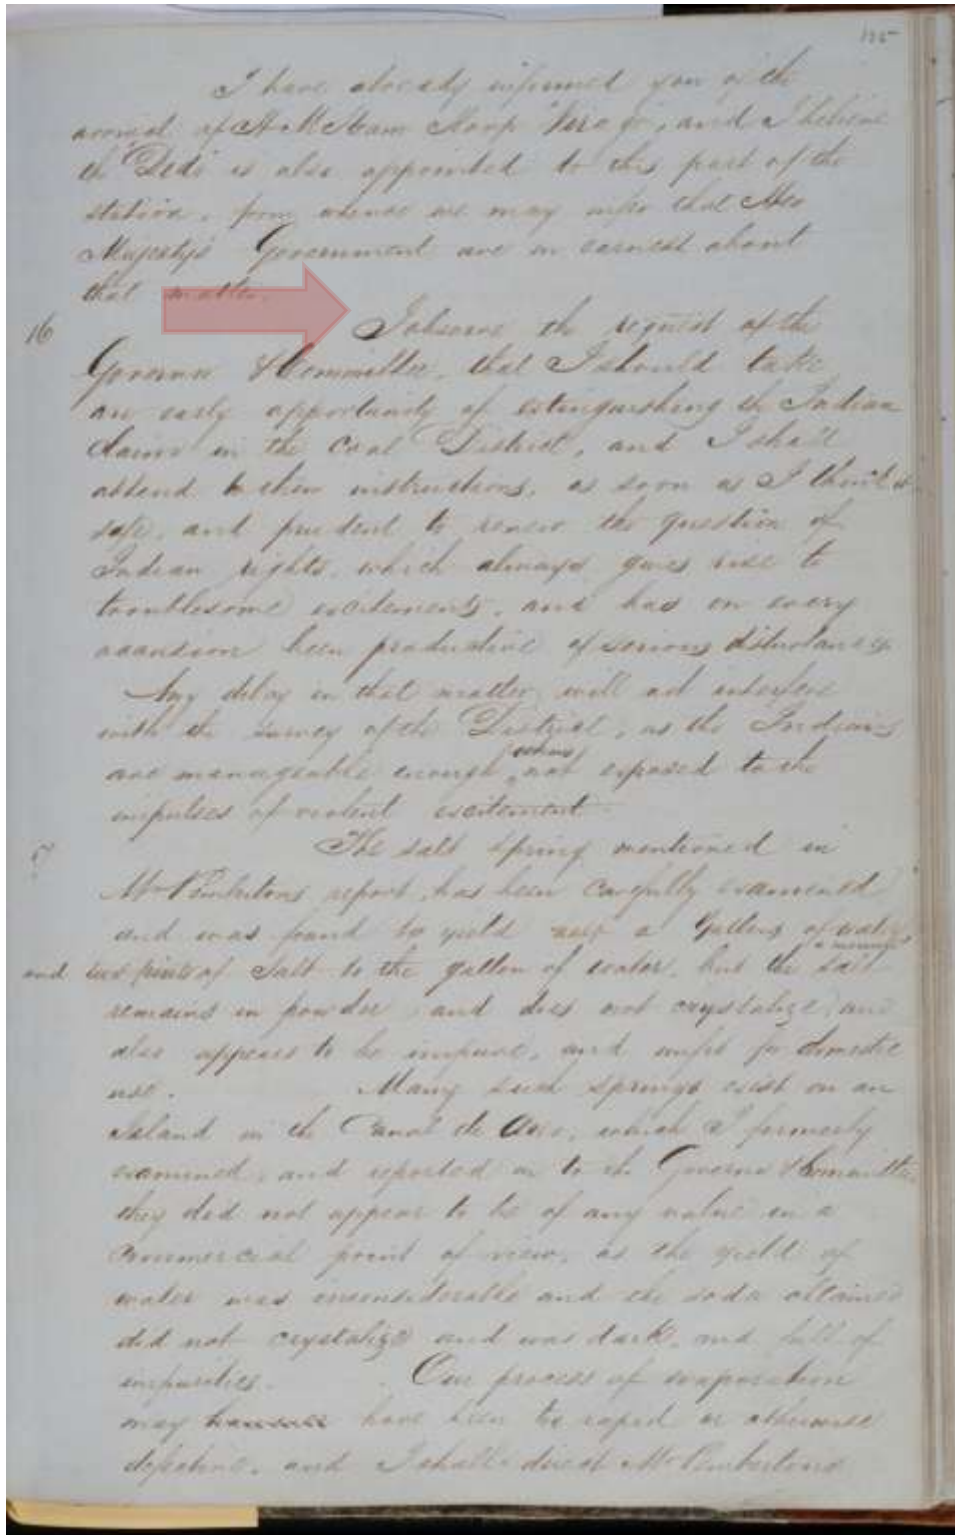 125
I have already informed you of the
arrival of H. M. Steam Sloop Virago, and I believe
the Dido is also appointed to this part of the
station, from whence we may infer that Her
Majesty's Government are in earnest about
that matter.
16 I observe the request of the
Governor & Committee, that I should take
an early opportunity of extinguishing the Indian
claims in the Coal District, and I shall
attend to their instructions, as soon as I think it
safe, and prudent to renew the question of
Indian rights, which always gives rise to
troublesome excitements, and has on every
occasion been productive of serious disturbances.
Any delay in that matter will not interfere
with the survey of the District, as the Indians
are manageable enough when not exposed to the
impulses of violent excitement.
The salt Spring mentioned in
Mr Pemberton's report, has been carefully examined
and was found to yield a Gallons of water
a minute
and pints of Salt to the gallon of water, but the salt
remains in powder and does not crystalize, and
also appears to be impure, and unfit for domestic
use. Many such springs exist on an
Island in the Canal de Aro, which I formerly
examined, and reported on to the Governor & Committee
they did not appear to be of any value in a
commercial point of view, as the yield of
water was inconsiderable and the soda obtained
did not crystalize and was dark, and full of
impurities. Our process of evaporation
may have been too rapid or otherwise
defective, and I shall direct Mr Pemberton's